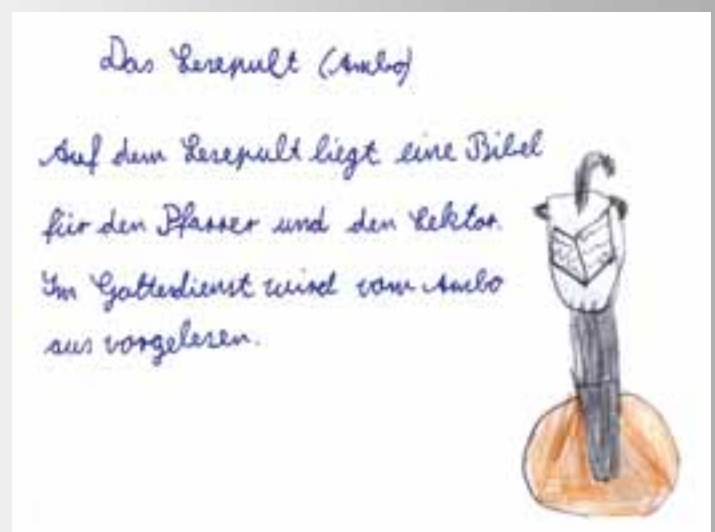 Das Lesepult (Ambo)
Auf dem Lesepult liegt eine Bibel
für den Pfarrer und den Lektor.
Im Gottesdienst wird vom Ambo
aus vorgelesen.